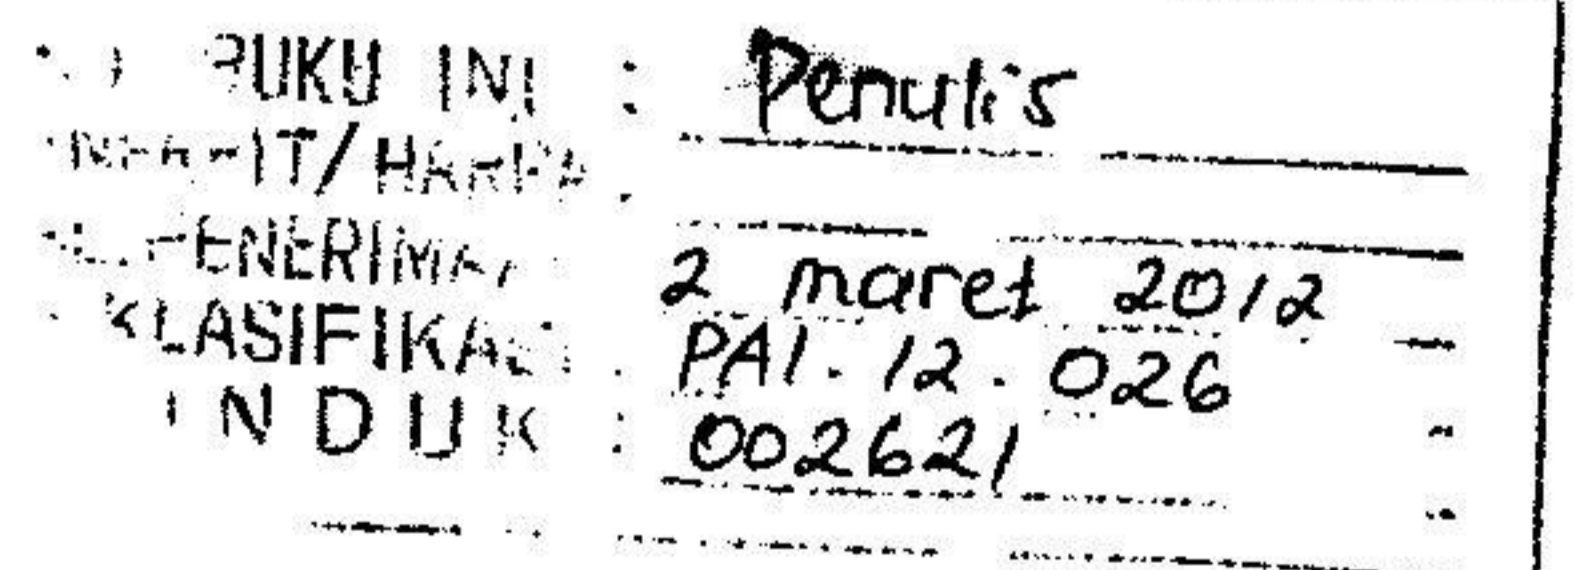 BUKU INI : Penulis
HARGA
PENERIMAAN 2 maret 2012
KLASIFIKASI : PAI. 12. 026
INDUK : 002621